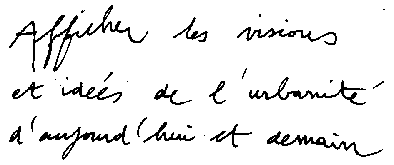 Afficher les visions
et ideés de l'urbanité
d'aujourd'hui et demain